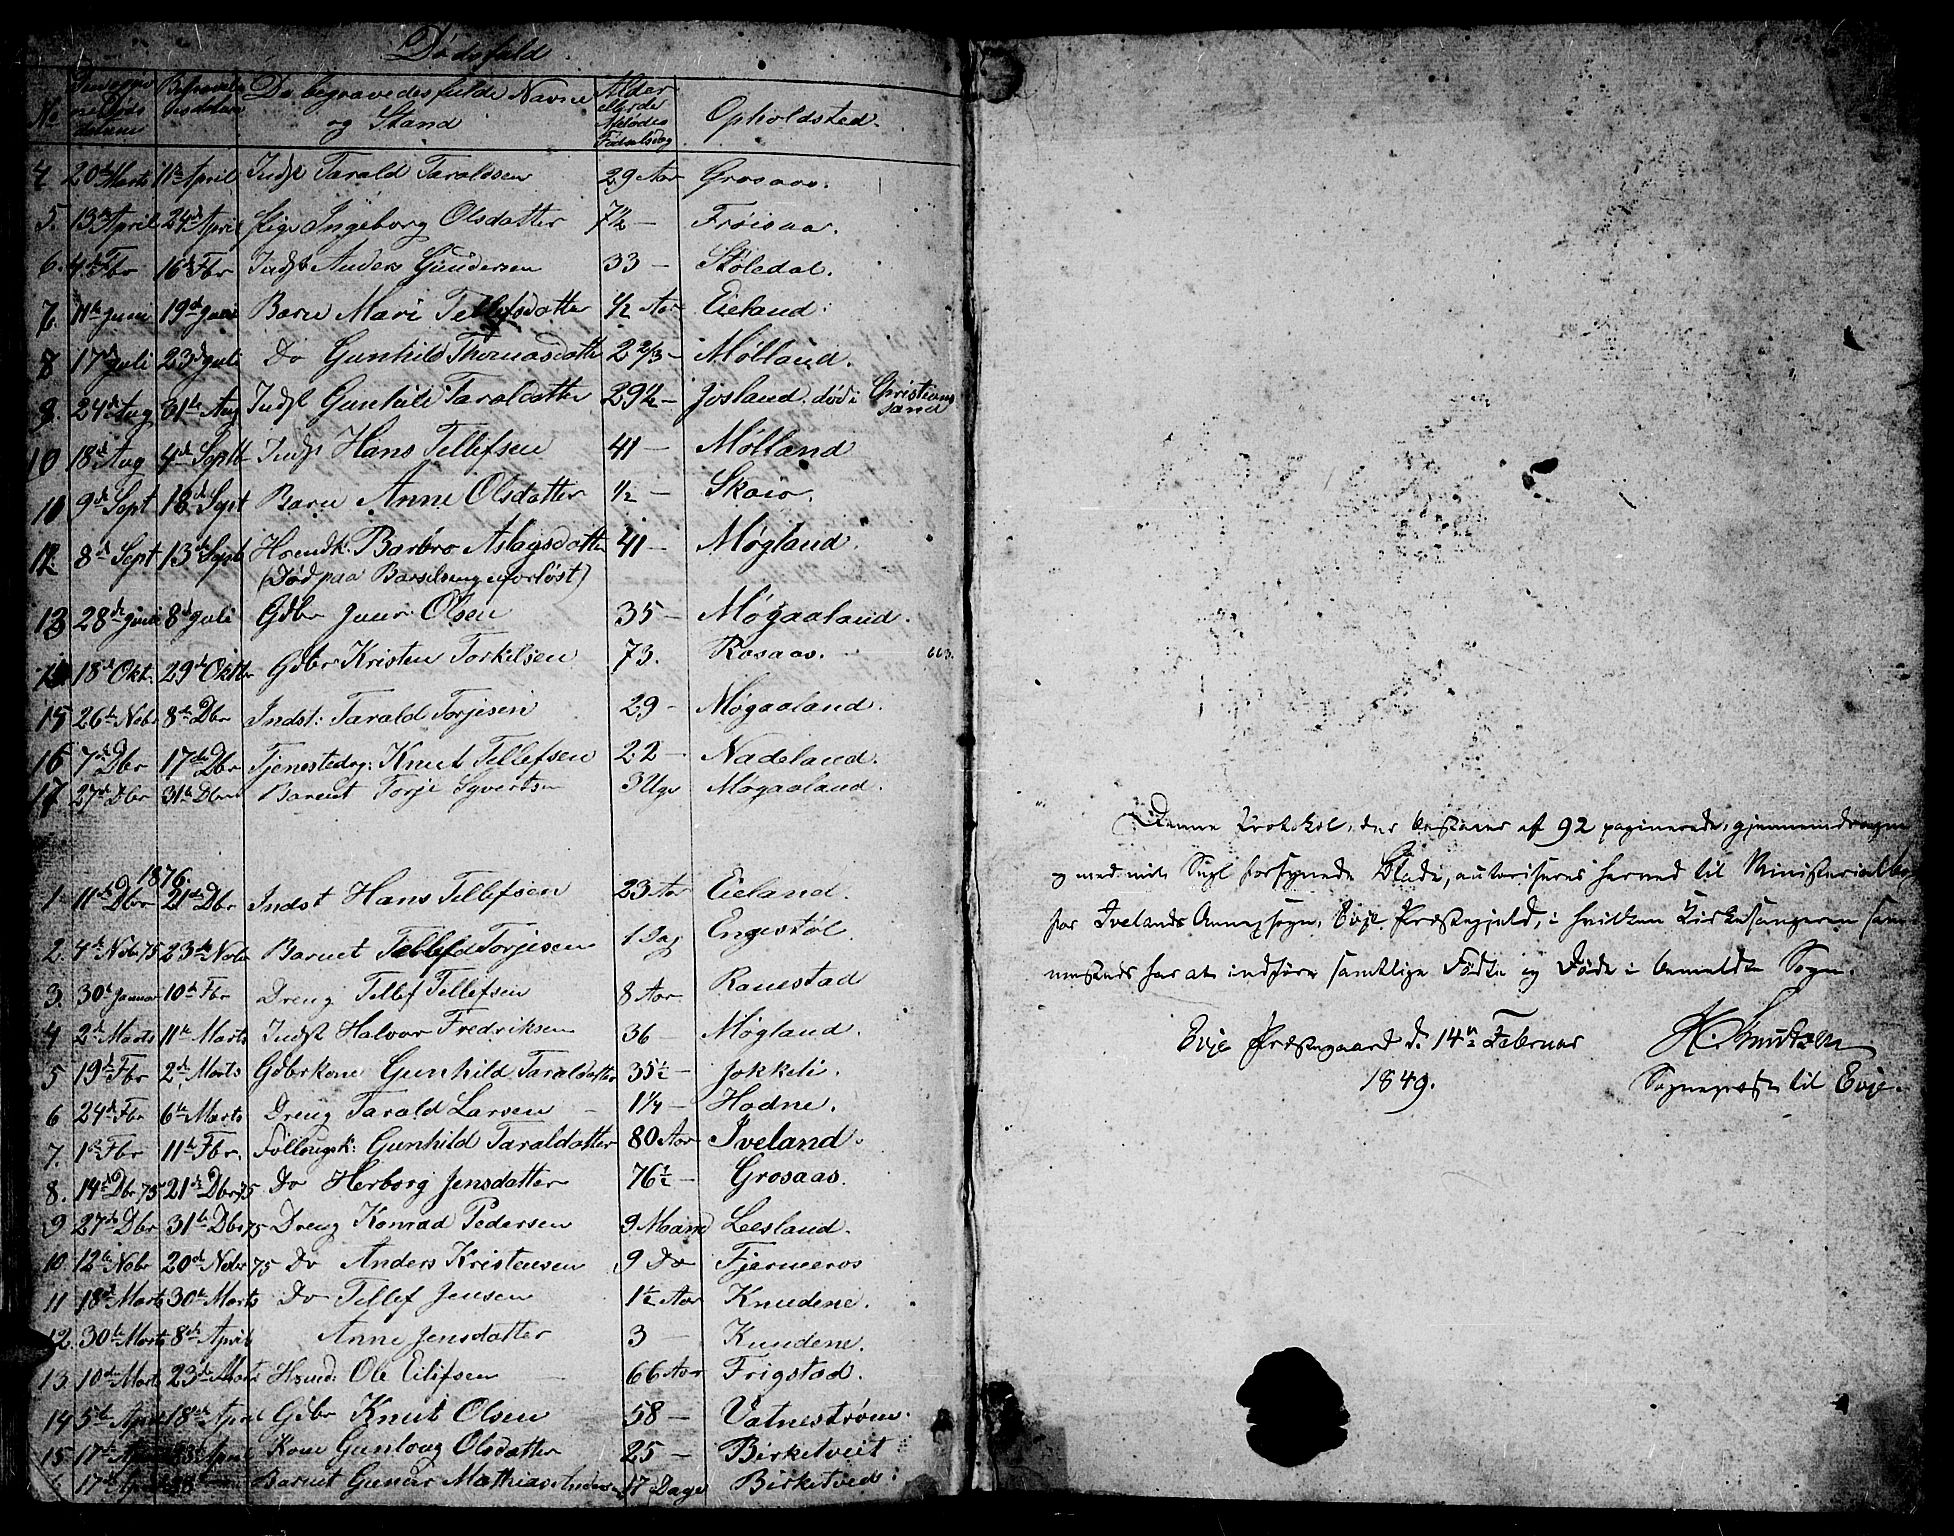 Dødsfald.
No Dødsdatum Begravelsesdatum De begravedes fulde Navne og Stand Alder eller de Afdødes Fødselsdag Opholdsted.
4 20de Marts 11te April Indst Tarald Taraldsen 29 Aar Grosaas.
5. 13de April 24de April Pige Ingeborg Olsdatter 7½ — Frøisaa.
6. 4de Fbr 16de Fbr Indst Anders Gundersen 33 — Støledal.
7. 11te Juni 19de Juni Barn Mari Tellefsdatter ½ Aar Eieland.
8 17de Juli 23de Juli Do Gunhild Thomasdatter 2 2/3 — Mølland.
9. 24de Aug 31te Aug Indst Gunhild Taraldatter 29½ — Josland. død i Christianssand
10 18de Aug 4de Septb Indst Hans Tellefsen 41 — Mølland
11 9de Sept 18de Sept Barn Anne Olsdatter ½ — Skaiø.
12. 8de Sept 13de Septb Hsmdk: Barbro Aslagsdatter 41 — Møgland.
(Død paa Barselseng uforløst)
13 28de Juni 8de Juli Gdbr Juur Olsen 35 — Møgaaland.
14 18de Okt. 29de Oktbr Gdbr Kristen Torkilsen 73. Rosaas.
15 26te Nobr 8de Dbr Indst: Tarald Torjesen 29 — Møgaaland.
16 7de Dbr 17de Dbr Tjenestedrg: Knut Tellefsen 22 — Nadeland.
17 27de Dbr 31te Dbr Barnet Torje Syvertsen 3 Uger Møgaaland.
1876.
1. 11te Dbr 21de Dbr Indst Hans Tellefsen 23 Aar Eieland.
2. 4de Nobr 75 23de Nobr Barnet Tellef Torjesen 1 Dag Engestøl.
3. 30te Januar 10de Fbr Dreng Tellef Tellefsen 8 Aar Ranestad
4 2de Marts 11te Marts Indst Halvor Fredriksen 36 — Møgland.
5 19de Fbr 2de Marts Gdbrkone Gunhild Taraldatter 35½ — Jokkeli.
6 24de Fbr 6te Marts Dreng Tarald Larsen 1¼ — Hodne.
7. 1ste Fbr 11te Fbr. Føllougsk: Gunhild Taraldatter 80 Aar Iveland.
8. 14de Dbr 75 21de Dbr 75 Do Herborg Jensdatter 76½ — Grosaas.
9 27de Dbr 31te Dbr 75 Dreng Konrad Pedersen 9 Maand Leesland.
10. 12te Nobr 20de Nobr 75 Do Anders Kristensen 9 Do Fjermeros
11 18de Marts 30te Marts Do Tellef Jensen 1½ Aar Knudene.
12. 30te Marts 8de April Anne Jensdatter 3 Knudene.
13. 10de Marts 23de Marts Hsmd: Ole Eilifsen 66 Aar Frigstad.
14 5te April 18de April Gdbr Knut Olsen 58 — Vatnestrøm.
15 17de April April Kone Gunloug Olsdatter 25 — Birketveit
17de Barnet Gunar Mathias Andersen 17 Dage Birketveit
Denne Protokol, der bestaaer af 92 paginerede, gjennemdragne
og med mit Segl forsynede Blade, autoriseres herved til Ministerialbog
for Ivelands Annexsogn, Evje Præstegjeld, i hvilken Kirkesangeren sam-
mesteds har at indføre samtlige Fødte og Døde i bemeldte Sogn.
Evje Præstegaard d. 14de Februar
1849.
H. Knutzen
Sognepræst til Evje.